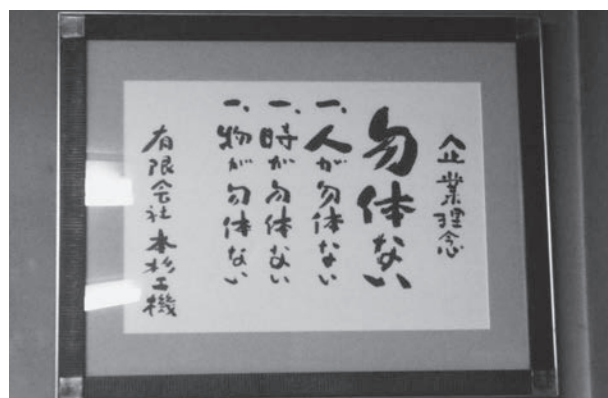 企業理念
勿体ない
一、人が勿体ない
一、時が勿体ない
一、物が勿体ない
有限会社 本杉工機